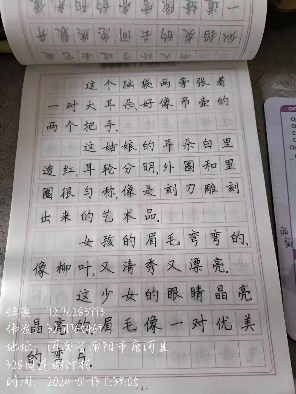 这个脑袋两旁张着
一对大耳朵,好像吊壶的
两个把手.
这姑娘的耳朵白里
透红,耳轮分明,外圈和里
圈很匀称,像是刻刀雕刻
出来的艺术品.
女孩的眉毛弯弯的,
像柳叶,又清秀又漂亮.
这少女的眼睛晶亮
晶亮的,眉毛像一对优美
的弯月.
地址:
时间: